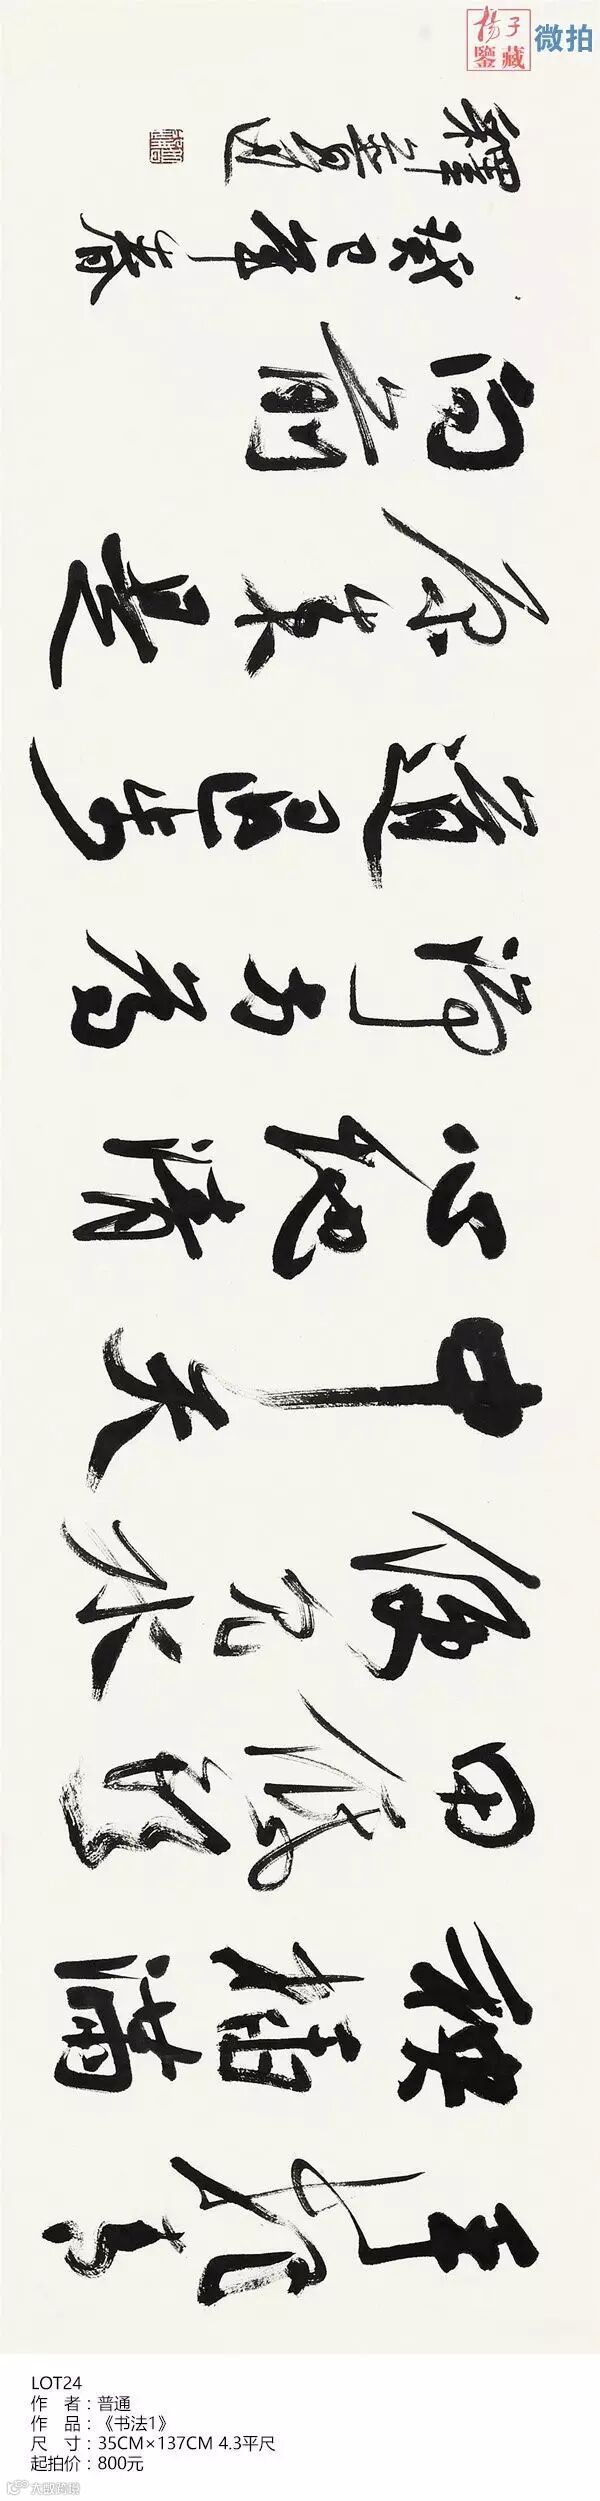 揚子
鑒藏
微拍
手把青
秧插滿
田低頭
便見水
中天
心地清
淨方為
道退步
原來是
向前
癸巳年春
釋普通
LOT24
作 者：普通
作 品：《书法1》
尺 寸：35CM×137CM 4.3平尺
起拍价：800元